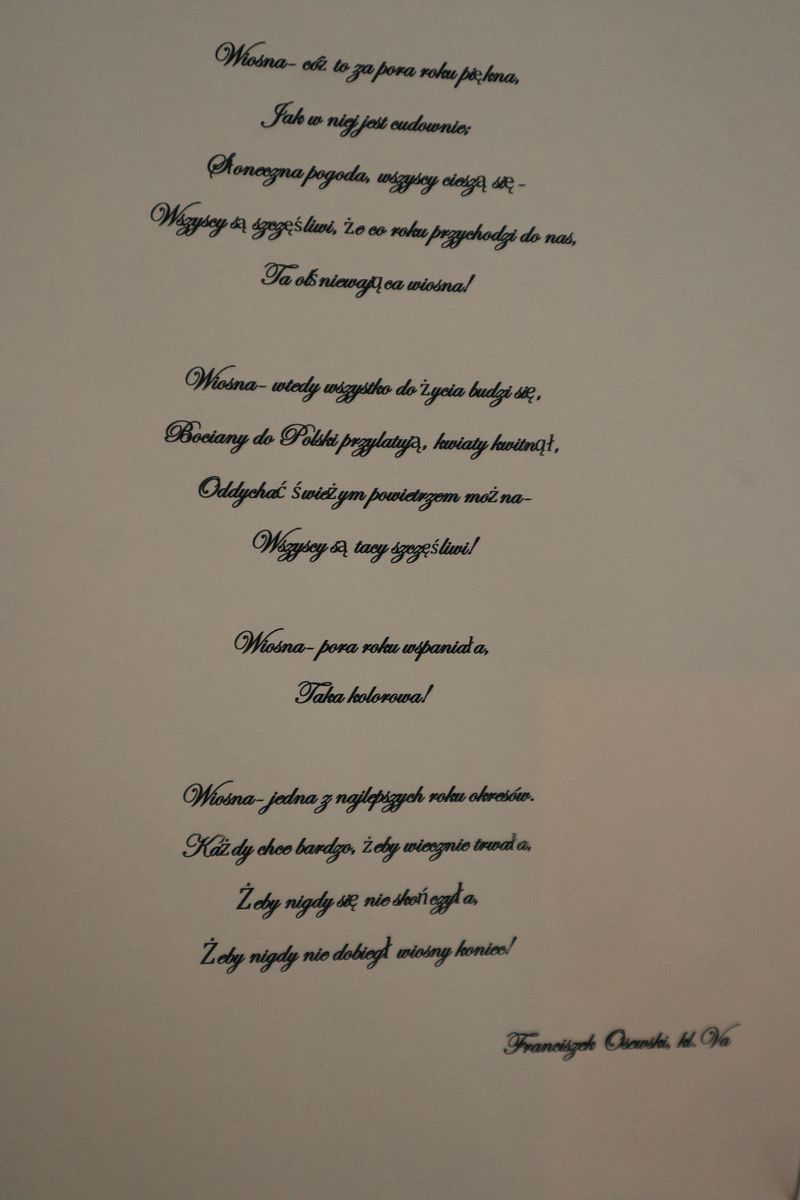 Wiosna- cóż to za pora roku piękna,
Jak w niej jest cudownie;
Słoneczna pogoda, wszyscy cieszą się -
Wszyscy są szczęśliwi, że co roku przychodzi do nas,
Ta olśniewająca wiosna!
Wiosna- wtedy wszystko do życia budzi się,
Bociany do Polski przylatują, kwiaty kwitnął,
Oddychać świeżym powietrzem można-
Wszyscy są tacy szczęśliwi!
Wiosna- pora roku wspaniała,
Taka kolorowa!
Wiosna- jedna z najlepszych roku okresów.
Każdy chce bardzo, żeby wiecznie trwała,
Żeby nigdy się nie skończyła,
Żeby nigdy nie dobiegł wiosny koniec!
Franciszek Osewski, kl. Va